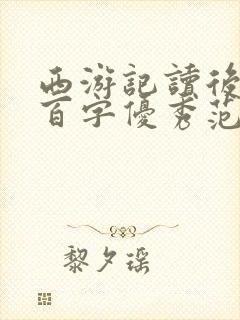 西游記讀後
百字優秀范
黎夕瑤